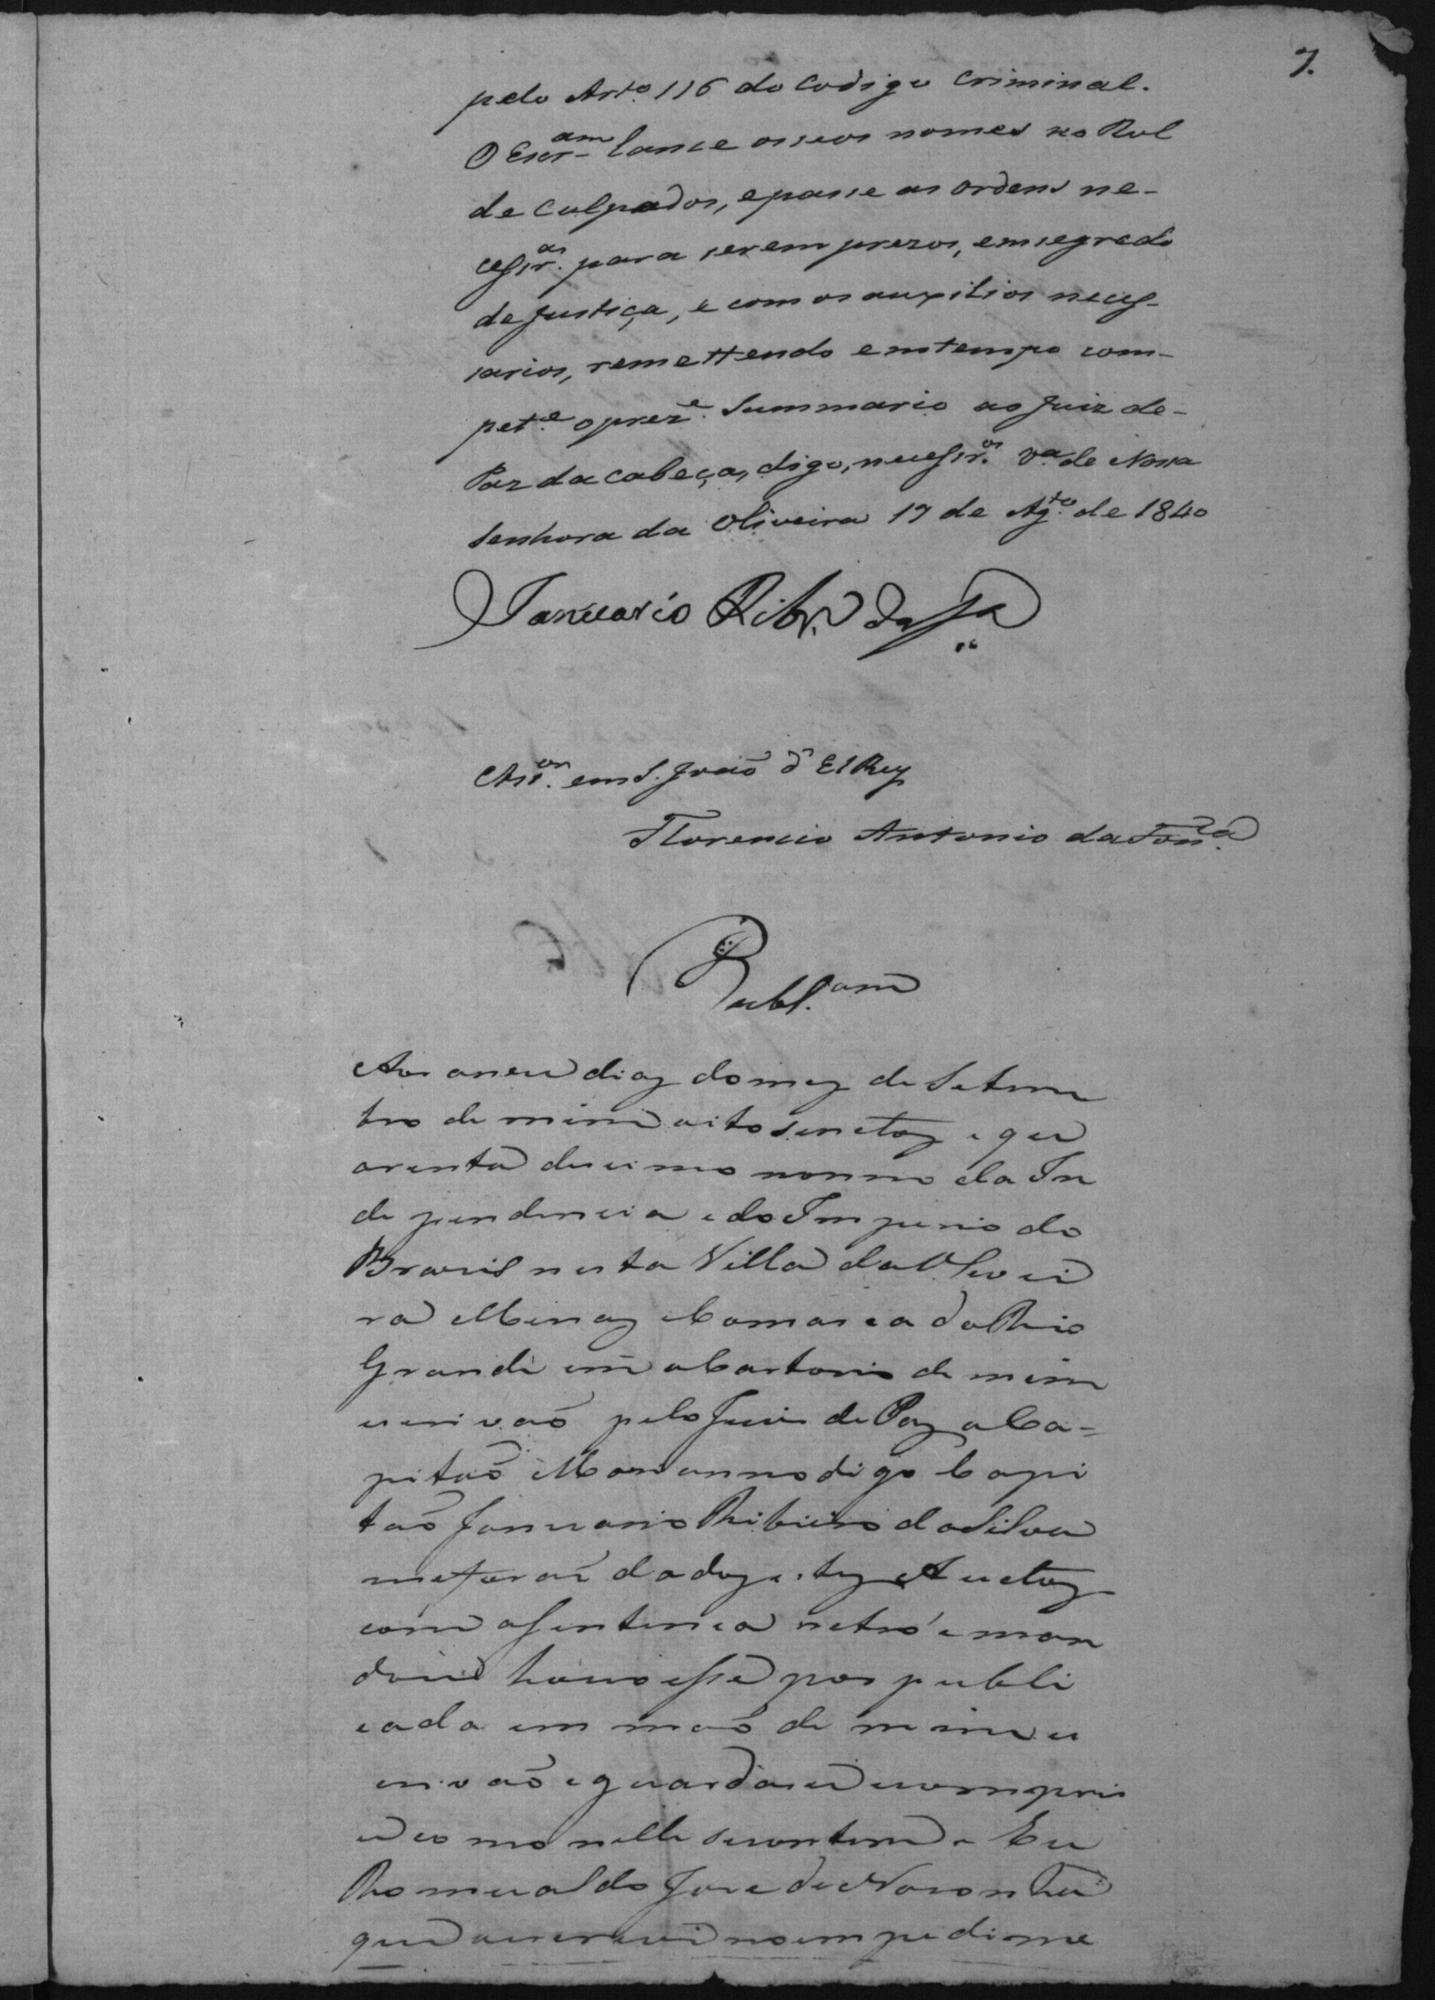 7.
pelo Art.º 116 do Codigo Criminal.
O Escr.am lance os seos nomes no Rol
de Culpados, e passe as Ordens ne-
cessr.as para serem prezos, em segredo
de justiça, e com os auxilios neces-
sarios, remettendo em tempo com-
pet.e o prez.e Summario ao Juiz de-
Paz da Cabeça, digo, necessr.os V.a de Nossa
Senhora da Oliveira 17 de Ag.to de 1840
Januario Ribr.o da S.a
em S. João d'El Rey
Florencio Antonio da Fon.ca
Publ.am
Aos onze dias do mez de Setem
bro de mim oitosenctos e qua
arenta decimo nonno da In
dependencia e do Imperio do
Brazil nesta Villa da Olivei
ra Minas Comarca do Rio
Grande em o Cartorio de mim
escrivaõ pelo Juis de Paz o Ca=
pitaõ Mariannno digo Capi
taõ Januario Ribeiro da Silva
me foraõ dados estes Auctos
com a sentença retró e man
dou houvesse por publi
cada em maõ de mim es
crivaõ e guardase e compris
e como nella se contem e Eu
Romualdo Jose de Noronha
que a escrevi no empedime